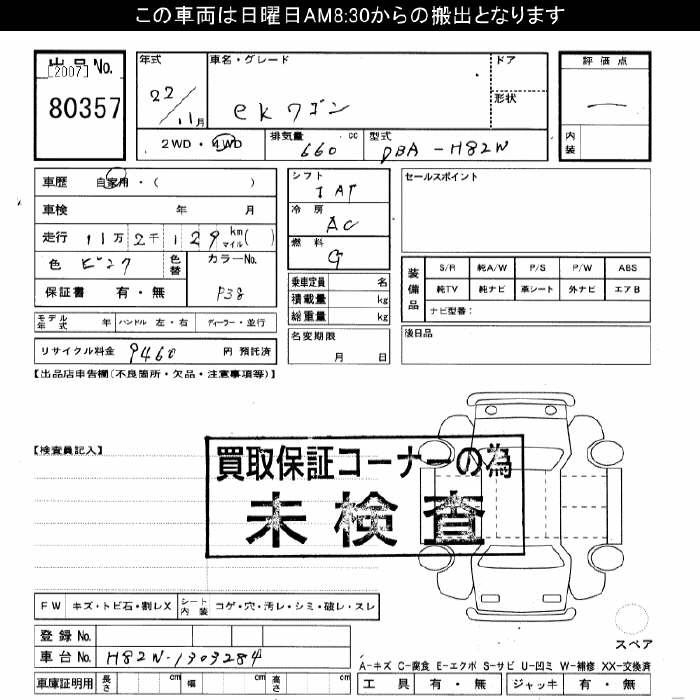 この車両は日曜日AM8:30からの搬出となります
出品No.
[2007]
80357
年式
22/11月
車名・グレード
ekワゴン
ドア
形状
評価点
内装
2WD・4WD
排気量
660 cc
型式
DBA-H82W
車歴 自家用・( )
車検 年 月
走行 11万 2千 129 km マイル( )
色 ピンク
色替
カラーNo.
P38
保証書 有・無
シフト
IAT
冷房
AC
燃料
G
乗車定員 名
積載量 kg
総重量 kg
名変期限
月 日
セールスポイント
装備品
S/R 純A/W P/S P/W ABS
純TV 純ナビ 革シート 外ナビ エアB
ナビ型番:
後日品
モデル年式 年 ハンドル 左・右 ディーラー・並行
リサイクル料金 9460 円 預託済
【出品店申告欄(不良箇所・欠品・注意事項等)】
【検査員記入】
買取保証コーナーの為
未検査
FW キズ・トビ石・割レX シート内装 コゲ・穴・汚レ・シミ・破レ・スレ
スペア
登録No.
車台No. H82W-1303284
A-キズ C-腐食 E-エクボ S-サビ U-凹ミ W-補修 XX-交換済
車庫証明用 長さ cm 幅 cm 高さ cm
工具 有・無 ジャッキ 有・無